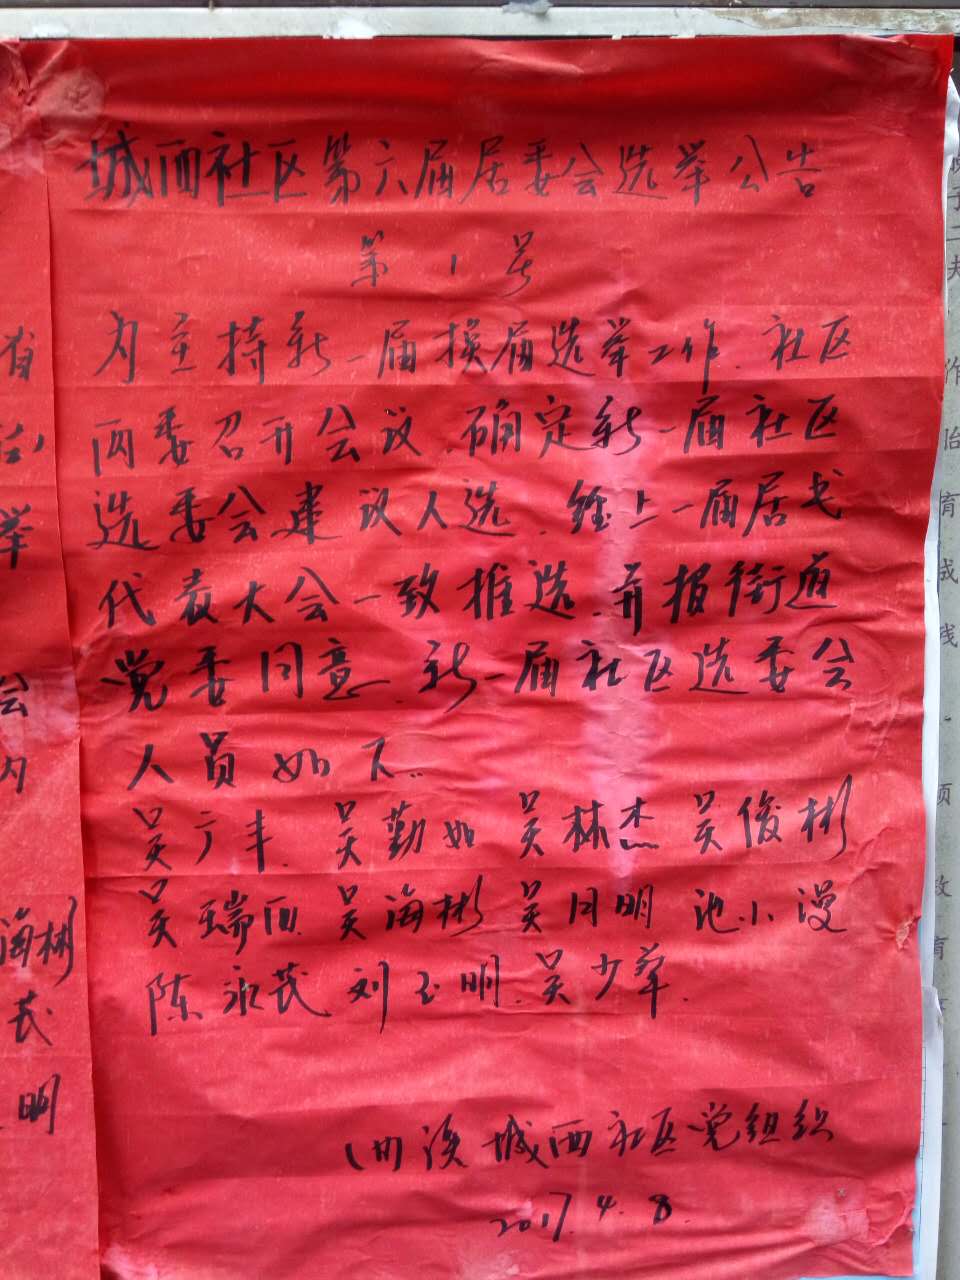 城西社区第六届居委会选举公告
第1号
为主持新一届换届选举工作.社区
两委召开会议.确定新一届社区
选委会建议人选.经上一届居民
代表大会一致推选.并报街道
党委同意.新一届社区选委会
人员如下:
吴广丰.吴勤如 吴林杰 吴俊彬
吴瑞西.吴海彬 吴月明 池小漫
陈永茂 刘玉明.吴少华.
城西社区党组织
2017.4.8.
有
举
会
为
海彬
茂
明